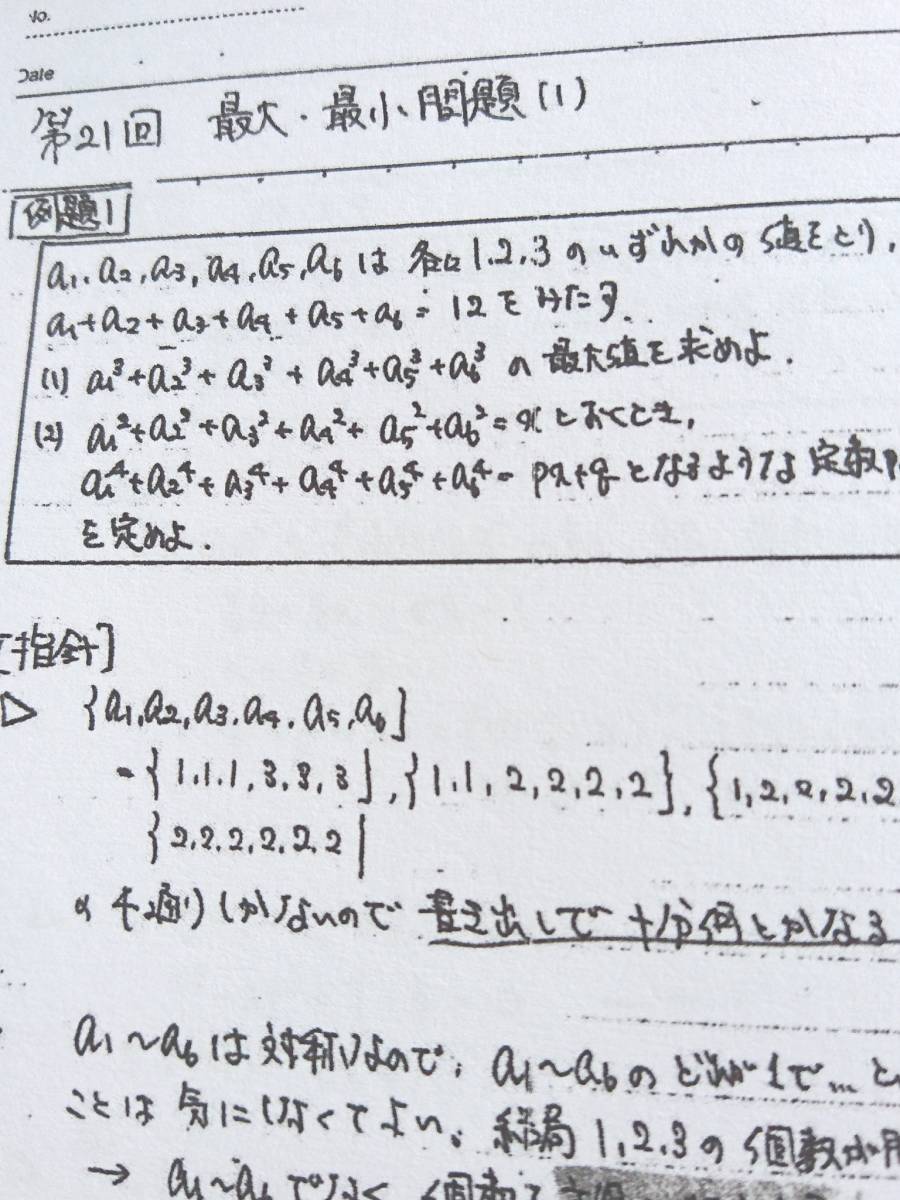 No.
Date
第21回 最大・最小問題(1)
例題1
a₁, a₂, a₃, a₄, a₅, a₆ は 各々 1, 2, 3 のいずれかの値をとり,
a₁+a₂+a₃+a₄+a₅+a₆=12 をみたす.
(1) a₁³+a₂³+a₃³+a₄³+a₅³+a₆³ の最大値を求めよ.
(2) a₁²+a₂²+a₃²+a₄²+a₅²+a₆²=x とおくとき,
a₁⁴+a₂⁴+a₃⁴+a₄⁴+a₅⁴+a₆⁴=px+q となるような定数p
を定めよ.
[指針]
▷ {a₁,a₂,a₃,a₄,a₅,a₆}
={1,1,1,3,3,3},{1,1,2,2,2,2},{1,2,2,2,2
{2,2,2,2,2,2}
の4通りしかないので書き出しで十分何とかなる
a₁~a₆は対称なので, a₁~a₆のどれが1で…と
ことは気にしなくてよい. 結局1,2,3の個数が
→ a₁~a₆でなく個数